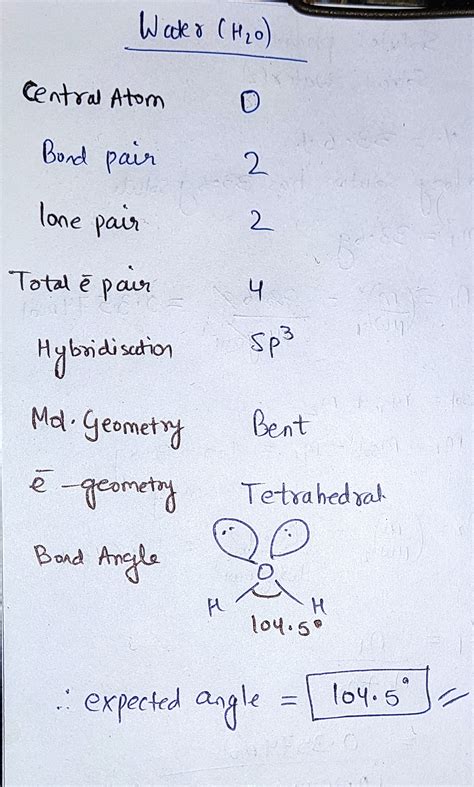 Water (H₂O)
Central Atom O
Bond pair 2
lone pair 2
Total ē pair 4
Hybridisation Sp³
Mol. Geometry Bent
ē - geometry Tetrahedral
Bond Angle
O
H H
104.5°
∴ expected angle = 104.5°